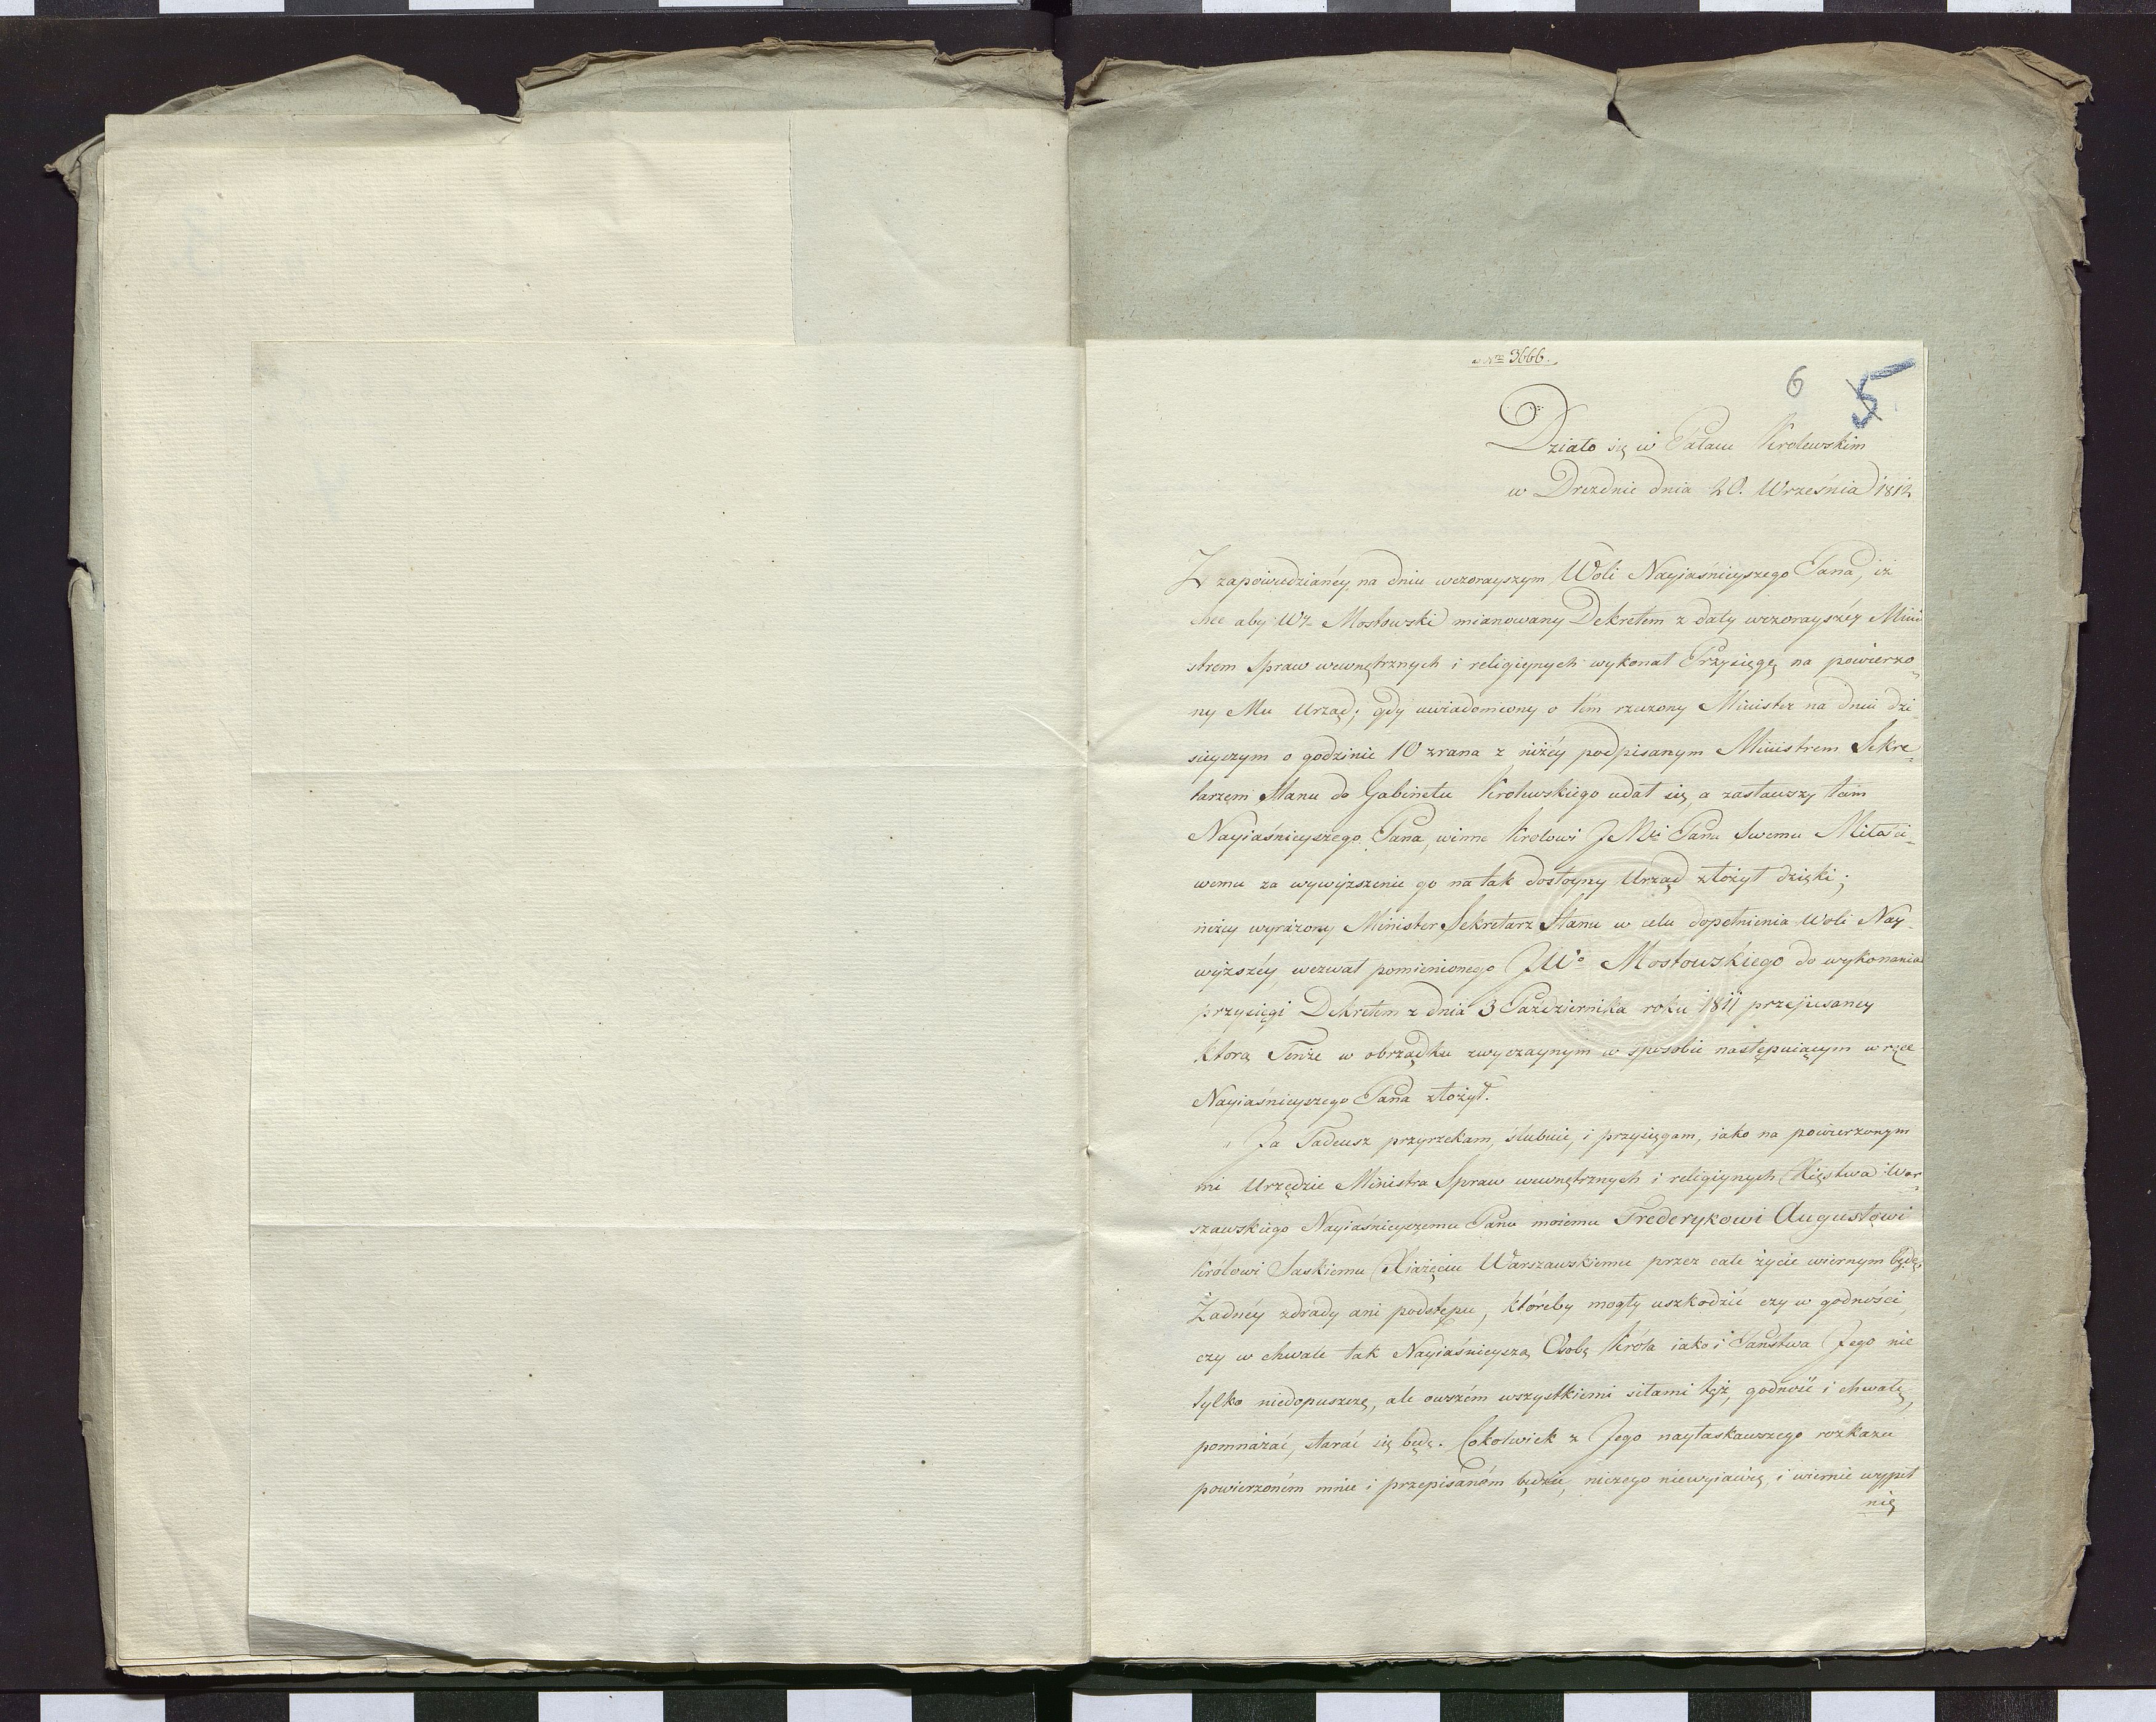 w Nrze 3666.
6 5
Działo się w Pałacu Krolewskim
w Dreznie dnia 20. Września 1812
Z zapowiedzianéy na dniu wczorayszym Woli Nayiaśnieyszego Pana, iż
chce aby Wż Mostowski mianowany Dekretem z daty wczorayszéy Mini
strem Spraw wewnętrznych i religiynych wykonał Przysięgę na powierzo
ny Mu Urząd; gdy uwiadomiony o tém rzeczony Minister na dniu dzi
sieyszym o godzinie 10 zrana z niżéy podpisanym Ministrem Sekre
tarzem Stanu do Gabinetu Krolewskiego udał się, a zastawszy tam
Nayiaśnieyszego Pana, winne Krolowi JeMci Panu Swemu Miłości
wemu za wywyższenie go na tak dostoyny Urząd złożył dzięki;
niżéy wyrażony Minister Sekretarz Stanu w celu dopełnienia Woli Nay
wyższéy wezwał pomienionego JWo Mostowskiego do wykonania
przysięgi Dekretem z dnia 3 Października roku 1811 przepisaney
ktorą Tenże w obrządku zwyczaynym w sposobie następuiącym w ręce
Nayiaśnieyszego Pana złożył.
„ Ja Tadeusz przyrzekam, ślubuię, i przysięgam, iako na powierzonym
mi Urzędzie Ministra Spraw wewnętrznych i religiynych Xięstwa War
szawskiego Nayiaśnieyszemu Panu moiemu Frederykowi Augustowi
Królowi Saskiemu Xiążęciu Warszawskiemu przez całe życie wiernym będę,
Żadnéy zdrady ani podstępu, któreby mogły uszkodzić czy w godności
czy w chwale tak Nayiaśnieyszą Osobę Króla iako i Państwa Jego nie
tylko niedopuszczę, ale owszém wszystkiemi siłami tęż godność i chwałę
pomnażać, starać się będę. Cokolwiek z Jego nayłaskawszego rozkazu
powierzoném mnie i przepisaném będzie, niczego niewyiawię, i wiernie wypeł
nię